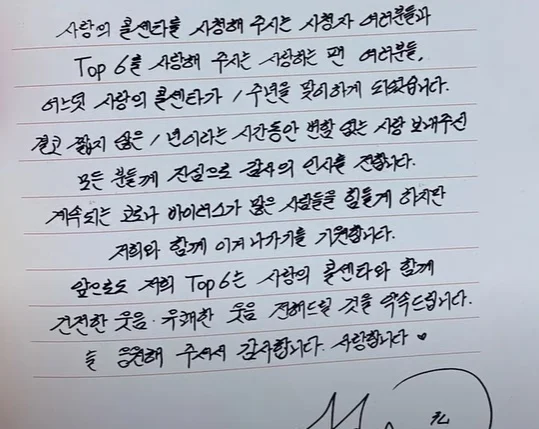 사랑의 콜센타를 시청해 주시는 시청자 여러분들과
Top 6를 사랑해 주시는 사랑하는 팬 여러분들.
어느덧 사랑의 콜센타가 1주년을 맞이하게 되었습니다.
결코 짧지 않은 1년이라는 시간동안 변함 없는 사랑 보내주신
모든 분들께 진심으로 감사의 인사를 전합니다.
계속되는 코로나 바이러스가 많은 사람들을 힘들게 하지만
저희와 함께 이겨나가기를 기원합니다.
앞으로도 저희 Top6는 사랑의 콜센타와 함께
건전한 웃음·유쾌한 웃음 전해드릴 것을 약속드립니다.
늘 응원해 주셔서 감사합니다. 사랑합니다 ♥